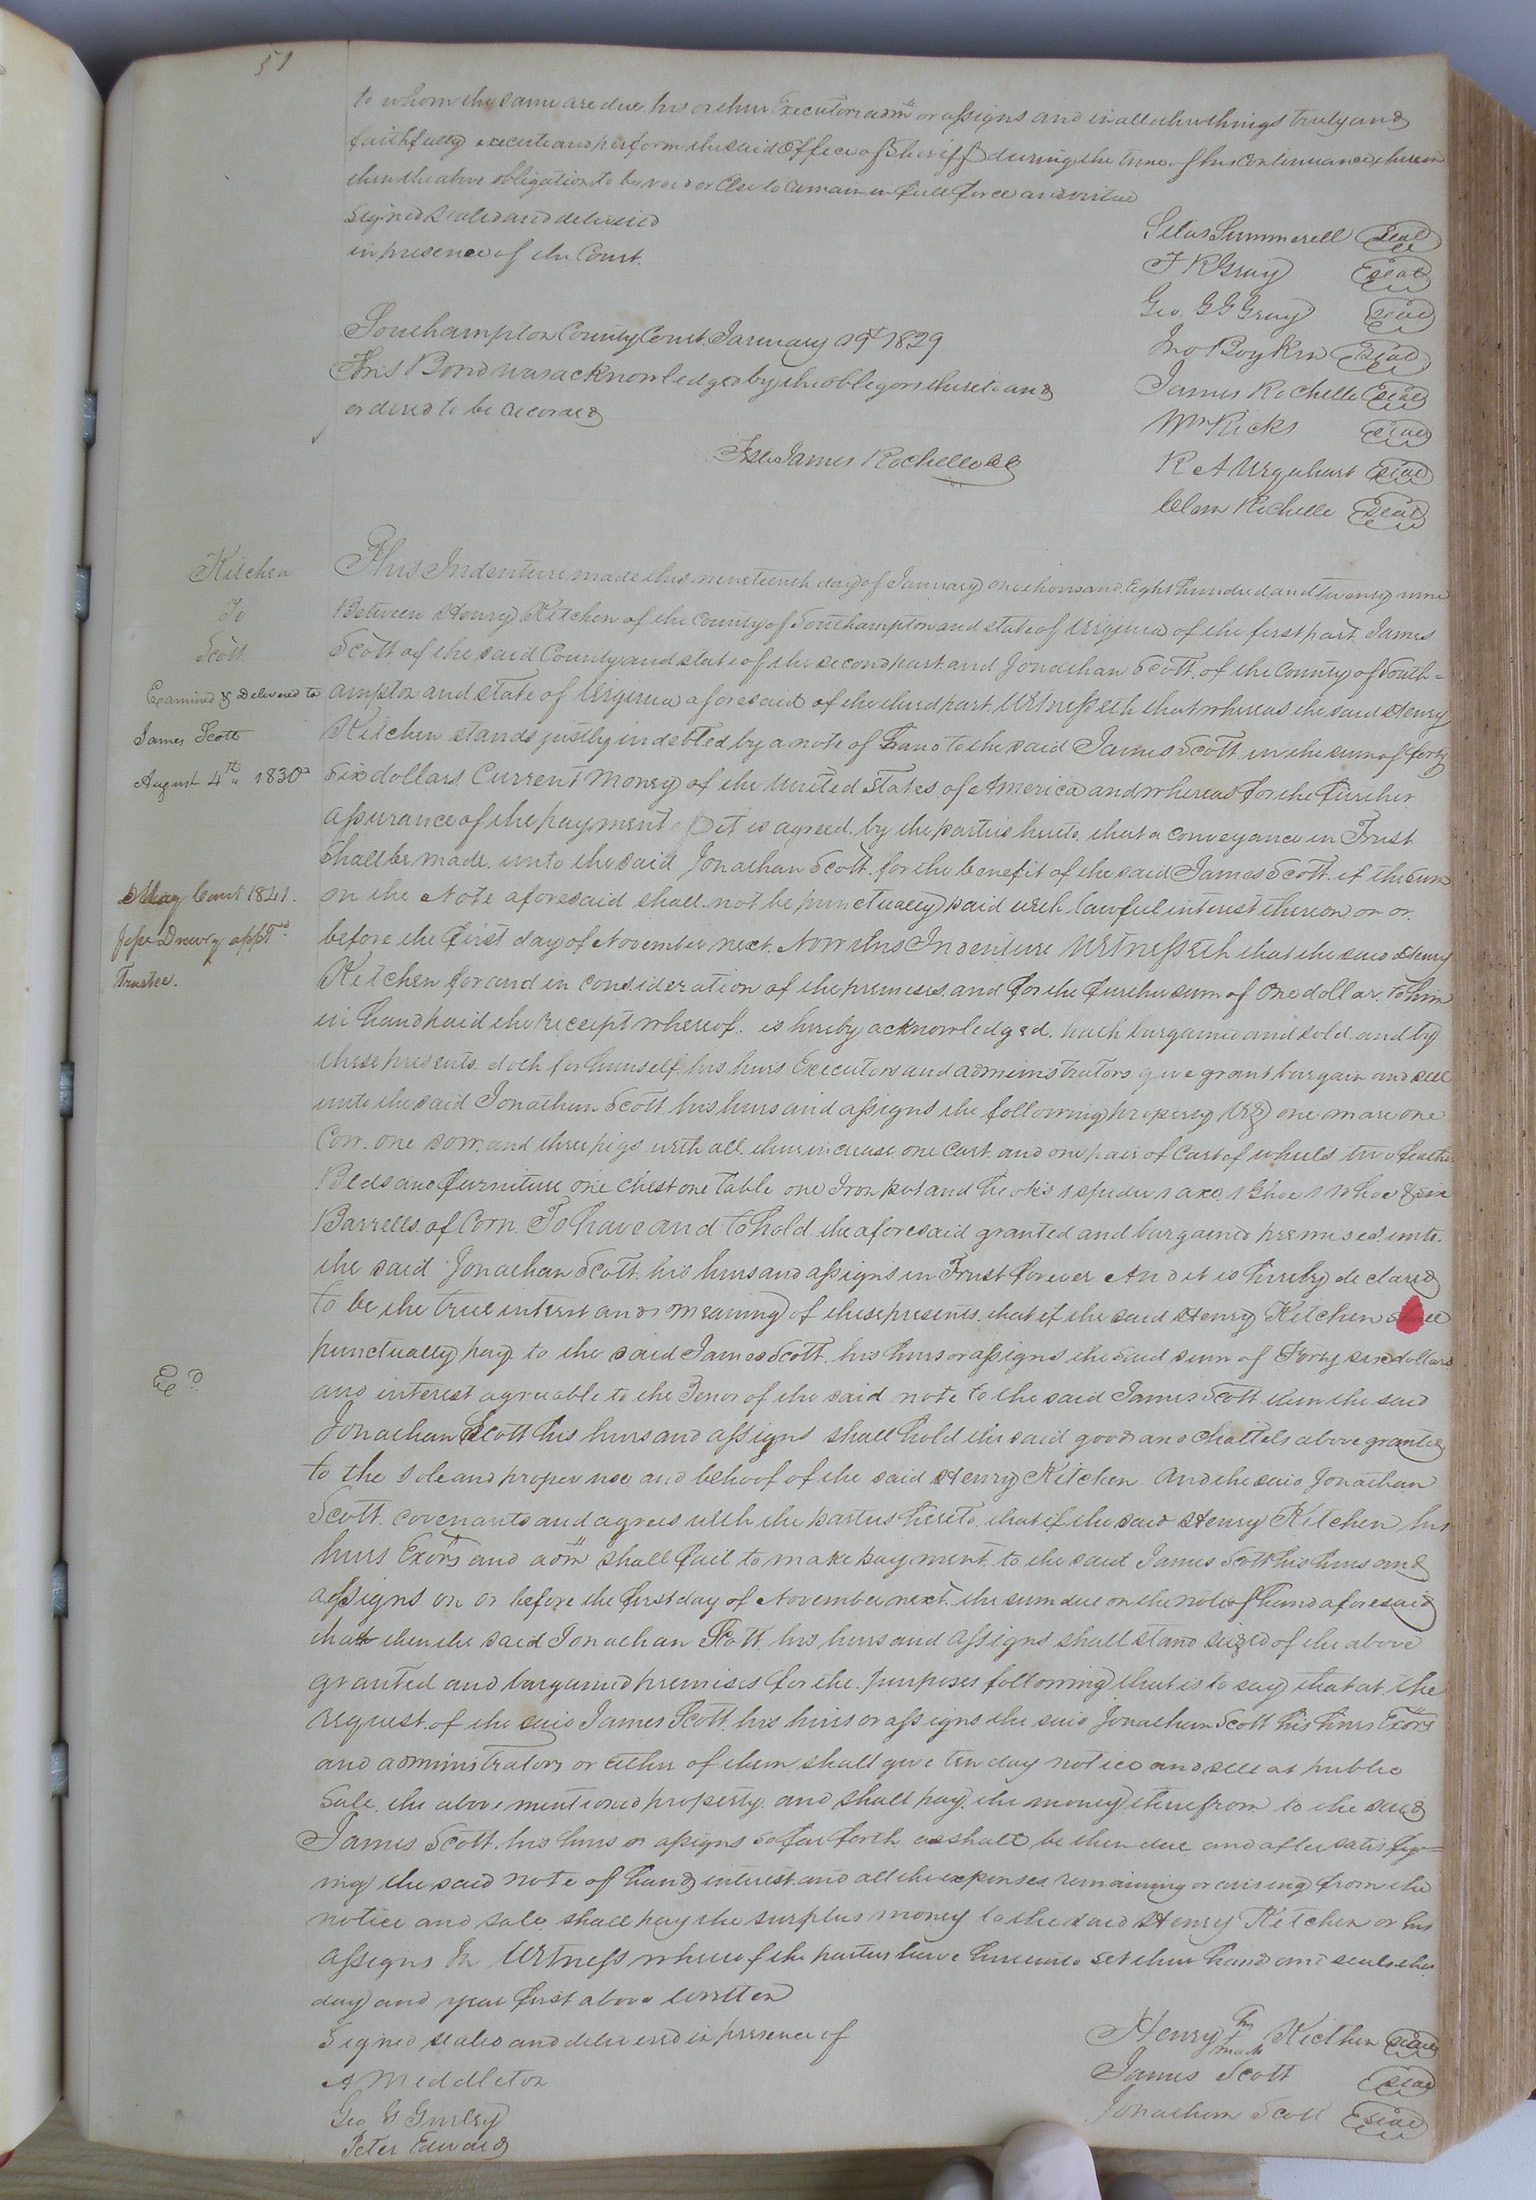 51
to whom the same are due, his or their Executors admrs or assigns and in all other things truly and
faithfully execute and perform the said Office of Sheriff during the time of his continuance therein
then the above obligation to be void or Else to remain in full force and virtue
Signed Sealed and delivered
in presence of the Court.
Silas Summerell Seal
J R Gray Seal
Geo. G G Gray Seal
Jno Boykin Seal
James Rochelle Seal
Wm Ricks Seal
R A Urquhart Seal
Clem Rochelle Seal
Southampton County Court January 19th 1829
This Bond was acknowledged by the obligors thereto and
ordered to be recorded
Teste James Rochelle CC
Kitchen
To
Scott
Examined & Delivered to
James Scott
August 4th 1830
May Court 1841.
Jesse Drewry apptd
Trustee.
Ed
This Indenture made this nineteenth day of January one thousand Eight hundred and twenty nine
Between Henry Kitchen of the County of Southampton and state of Virginia of the first part, James
Scott of the said County and state of the second part and Jonathan Scott of the County of South=
ampton and state of Virginia aforesaid of the third part Witnesseth that whereas the said Henry
Kitchen stands justly indebted by a note of hand to the said James Scott in the sum of forty
six dollars Current Money of the United States of America and whereas for the further
assurance of the payment it is agreed by the parties hereto that a conveyance in Trust
shall be made unto the said Jonathan Scott for the benefit of the said James Scott if the sum
in the Note aforesaid shall not be punctually paid with lawful interest thereon on or
before the first day of November next. Now this Indenture Witnesseth that the said Henry
Kitchen for and in consideration of the premises and for the further sum of One dollar to him
in hand paid the receipt whereof is hereby acknowledged, hath bargained and sold and by
these presents doth for himself his heirs Executors and administrators give grant bargain and sell
unto the said Jonathan Scott his heirs and assigns the following property Viz one mare one
Cow, one sow and three pigs with all their increase, one Cart and one pair of Cart wheels two feather
Beds and furniture one chest one Table one Iron pot and hooks 1 spider 1 axe 1 hoe & six
Barrells of Corn. To have and to hold the aforesaid granted and bargained premises unto
the said Jonathan Scott his heirs and assigns in Trust forever And it is hereby declared
to be the true intent and meaning of these presents, that if the said Henry Kitchen shall
punctually pay to the said James Scott, his heirs or assigns the said sum of Forty six dollars
and interest agreeable to the Tenor of the said note to the said James Scott then the said
Jonathan Scott his heirs and assigns shall hold the said goods and chattels above granted
to the sole and proper use and behoof of the said Henry Kitchen And the said Jonathan
Scott covenants and agrees with the parties hereto, that if the said Henry Kitchen his
heirs Exors and adm shall fail to make payment to the said James Scott his heirs and
assigns on or before the first day of November next the sum due on the note of hand aforesaid
that then the said Jonathan Scott his heirs and assigns shall stand seized of the above
granted and bargained premises for the purposes following that is to say that at the
request of the said James Scott, his heirs or assigns the said Jonathan Scott his heirs Exors
and administrators or Either of them shall give ten day notice and sell at public
Sale the above mentioned property and shall pay the money therefrom to the said
James Scott, his heirs or assigns so far forth as shall be then due and after satisfy=
ing the said note of hand interest and all the expenses remaining or arising from the
notice and sale shall pay the surplus money to the said Henry Kitchen or his
assigns In Witness whereof the parties have hereunto set their hand and seals the
day and year first above written
Signed sealed and delivered in presence of
A Middleton
Geo W Gurley
Peter Edwards
Henry his mark Kitchen Seal
James Scott Seal
Jonathan Scott Seal